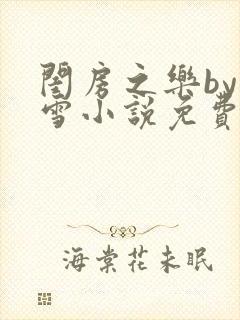 閨房之樂by
雪小說免費
海棠花未眠